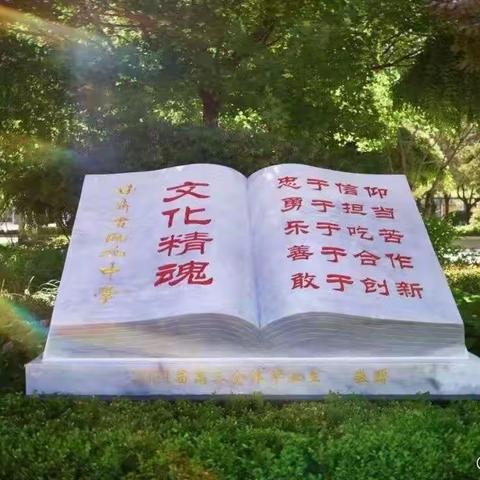 文化精魂
甘肃省中学
忠于信仰
勇于担当
乐于吃苦
善于合作
敢于创新
届高三全体毕业生 敬赠